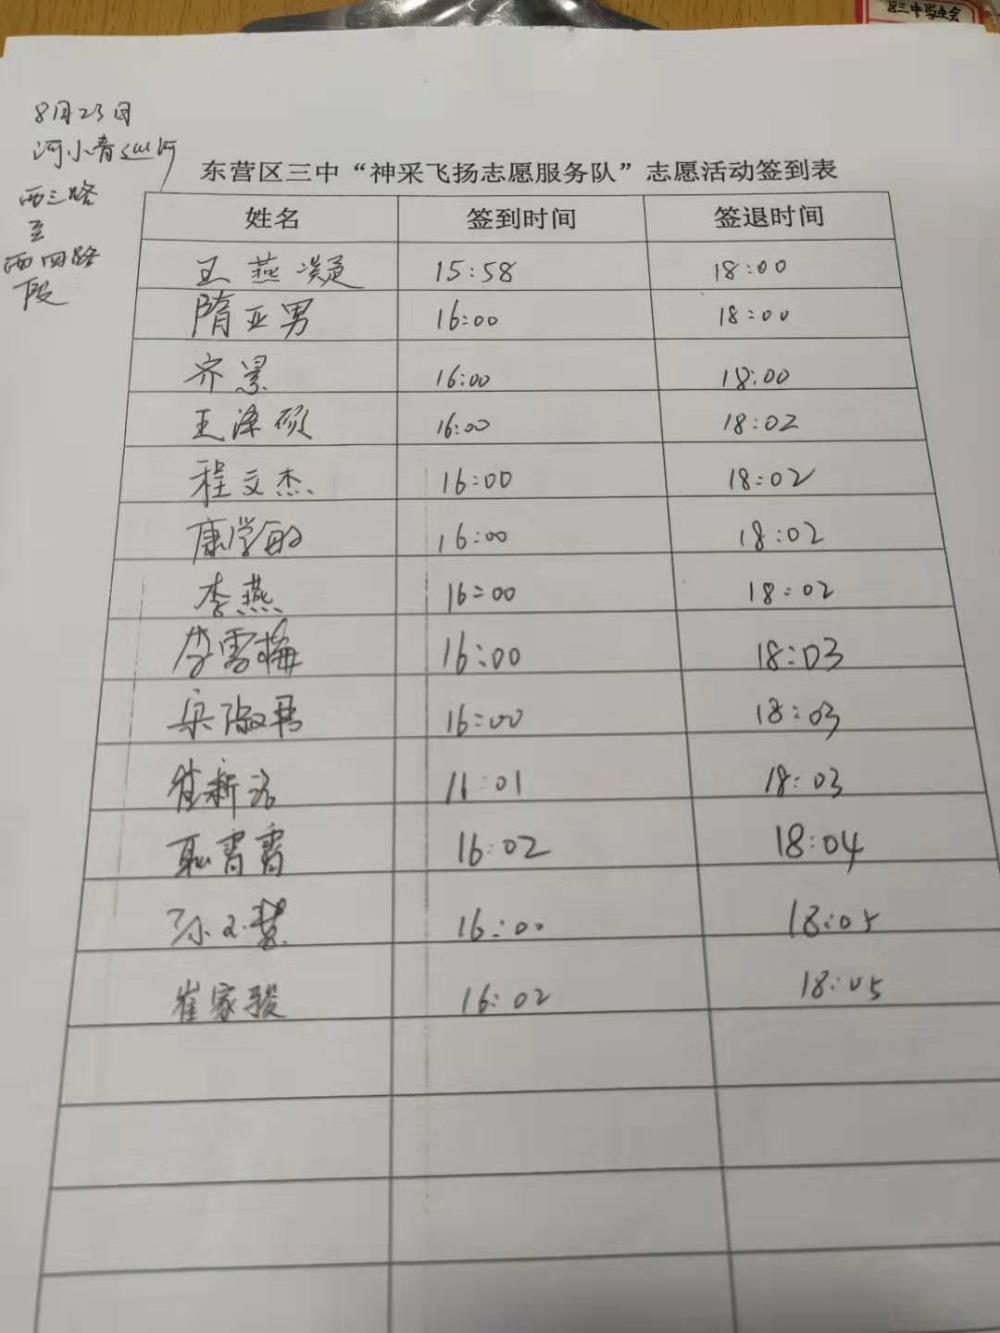 区三中学生会
8月23日
河小青巡河
西三路
至
西四路
段
东营区三中“神采飞扬志愿服务队”志愿活动签到表
姓名 签到时间 签退时间
王燕凝 15:58 18:00
隋亚男 16:00 18:00
齐景 16:00 18:00
王泽硕 16:00 18:02
程文杰 16:00 18:02
康学敏 16:00 18:02
李燕 16:00 18:02
李雪梅 16:00 18:03
梁淑君 16:00 18:03
新 11:01 18:03
耿雷雷 16:02 18:04
孙文慧 16:00 18:05
崔家骏 16:02 18:05